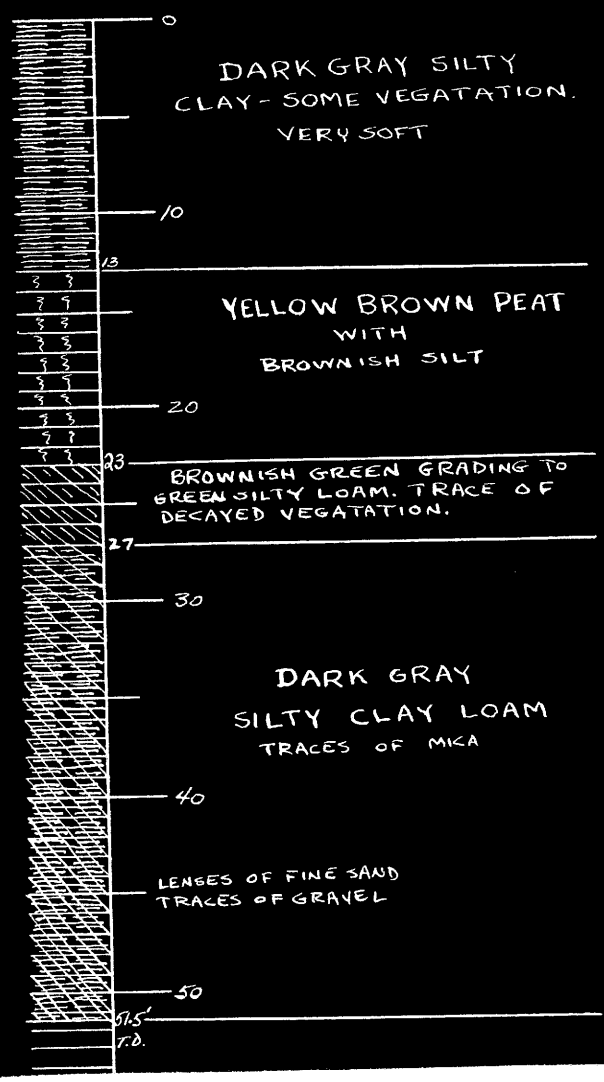 0
DARK GRAY SILTY
CLAY - SOME VEGATATION.
VERY SOFT
10
13
YELLOW BROWN PEAT
WITH
BROWNISH SILT
20
23
BROWNISH GREEN GRADING TO
GREEN SILTY LOAM. TRACE OF
DECAYED VEGATATION.
27
30
DARK GRAY
SILTY CLAY LOAM
TRACES OF MICA
40
LENSES OF FINE SAND
TRACES OF GRAVEL
50
51.5'
T.D.